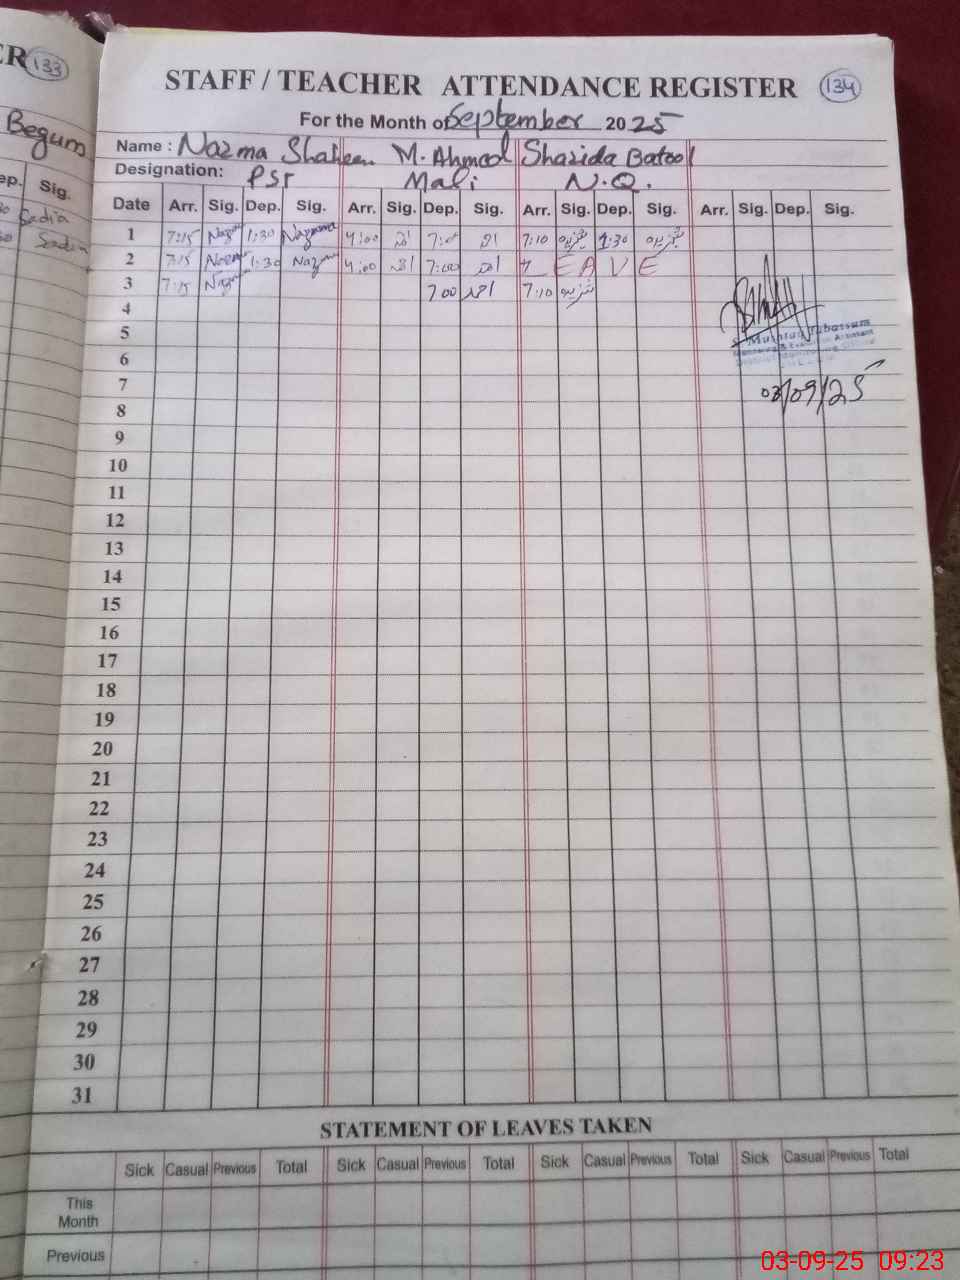 ER 133
Begum
ep. Sig.
30 Sadia
30 Sadia
134
STAFF / TEACHER ATTENDANCE REGISTER
For the Month of September 2025
Name : Nazma Shaheen M. Ahmed Shazida Batool
Designation: PST Mali N.Q.
Date Arr. Sig. Dep. Sig. Arr. Sig. Dep. Sig. Arr. Sig. Dep. Sig. Arr. Sig. Dep. Sig.
1 7:15 Nazma 1:30 Nazma 4:00 احمد 7:00 احمد 7:10 1:30
2 7:15 Nazma 1:30 Nazma 4:00 احمد 7:00 احمد LEAVE
3 7:15 Nazma 7 00 احمد 7:10
4
5
6
7
8
9
10
11
12
13
14
15
16
17
18
19
20
21
22
23
24
25
26
27
28
29
30
31
Mushtaq Tabassum
Monitoring & Evaluation Assistant
District Monitoring Officer
03/09/25
STATEMENT OF LEAVES TAKEN
Sick Casual Previous Total Sick Casual Previous Total Sick Casual Previous Total Sick Casual Previous Total
This
Month
Previous
03-09-25 09:23